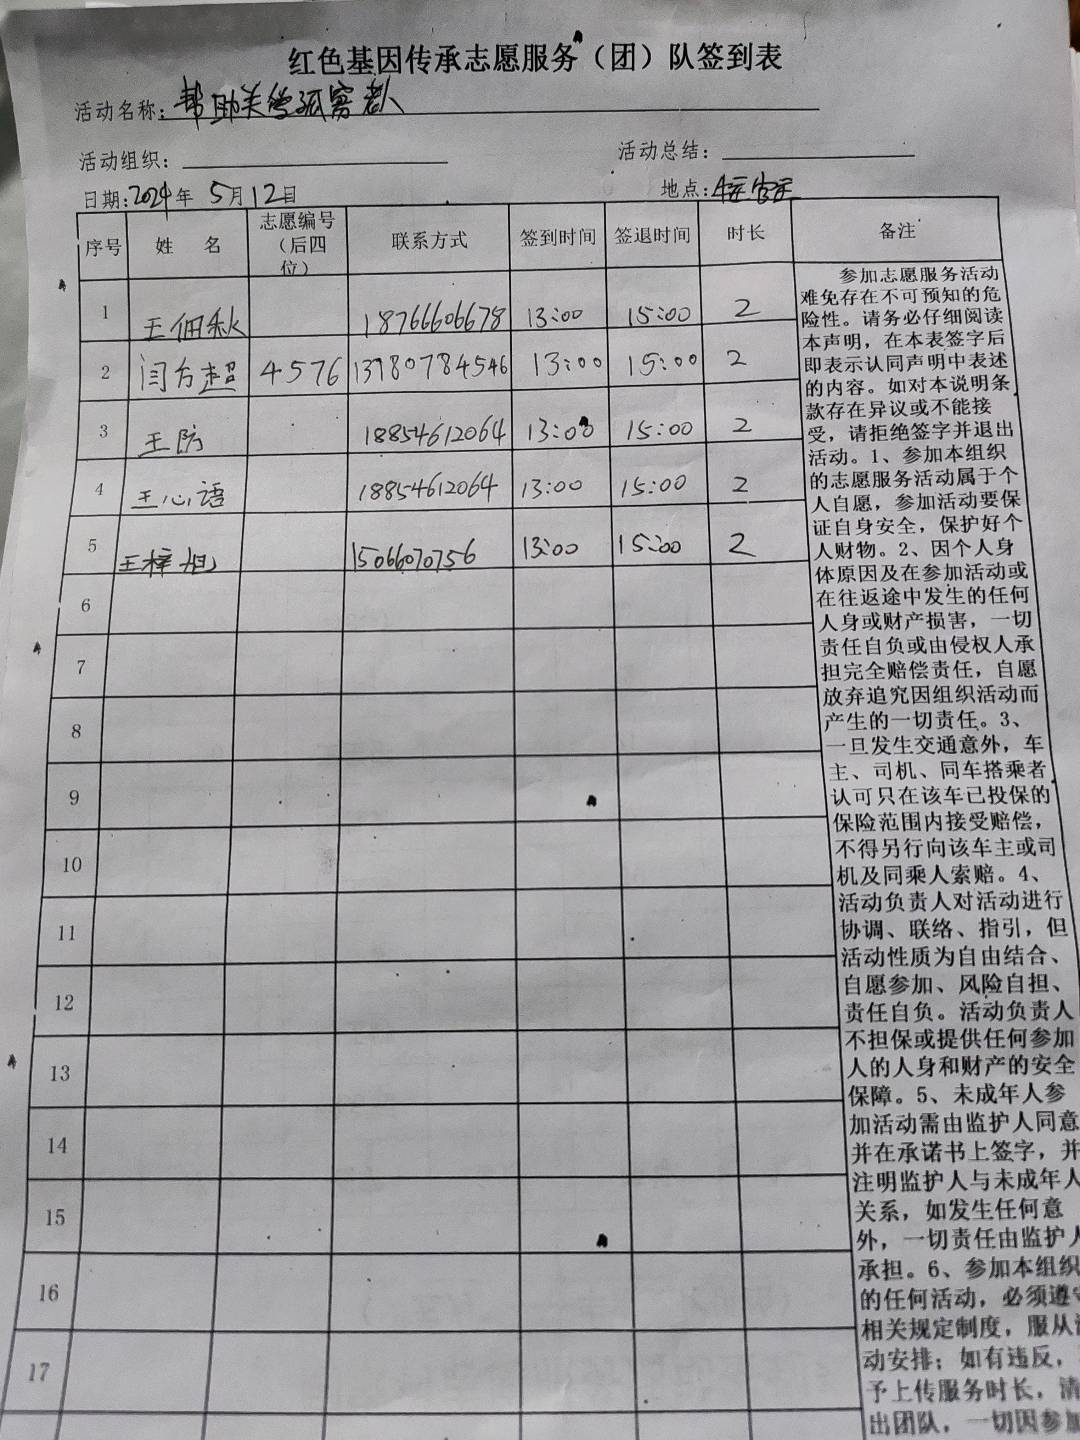 红色基因传承志愿服务（团）队签到表
活动名称：帮助关爱孤寡老人
活动组织： 活动总结：
日期：2024年 5月12日 地点：
序号 姓 名 志愿编号（后四位） 联系方式 签到时间 签退时间 时长 备注
1 王佃秋 18766606678 13:00 15:00 2
2 闫方超 4576 13780784546 13:00 15:00 2
3 王防 18854612064 13:00 15:00 2
4 王心语 18854612064 13:00 15:00 2
5 王梓旭 15066070756 13:00 15:00 2
6
7
8
9
10
11
12
13
14
15
16
17
参加志愿服务活动
难免存在不可预知的危
险性。请务必仔细阅读
本声明，在本表签字后
即表示认同声明中表述
的内容。如对本说明条
款存在异议或不能接
受，请拒绝签字并退出
活动。1、参加本组织
的志愿服务活动属于个
人自愿，参加活动要保
证自身安全，保护好个
人财物。2、因个人身
体原因及在参加活动或
在往返途中发生的任何
人身或财产损害，一切
责任自负或由侵权人承
担完全赔偿责任，自愿
放弃追究因组织活动而
产生的一切责任。3、
一旦发生交通意外，车
主、司机、同车搭乘者
认可只在该车已投保的
保险范围内接受赔偿，
不得另行向该车主或司
机及同乘人索赔。4、
活动负责人对活动进行
协调、联络、指引，但
活动性质为自由结合、
自愿参加、风险自担、
责任自负。活动负责人
不担保或提供任何参加
人的人身和财产的安全
保障。5、未成年人参
加活动需由监护人同意
并在承诺书上签字，并
注明监护人与未成年人
关系，如发生任何意
外，一切责任由监护人
承担。6、参加本组织
的任何活动，必须遵守
相关规定制度，服从活
动安排；如有违反，
予上传服务时长，清
出团队，一切因参加